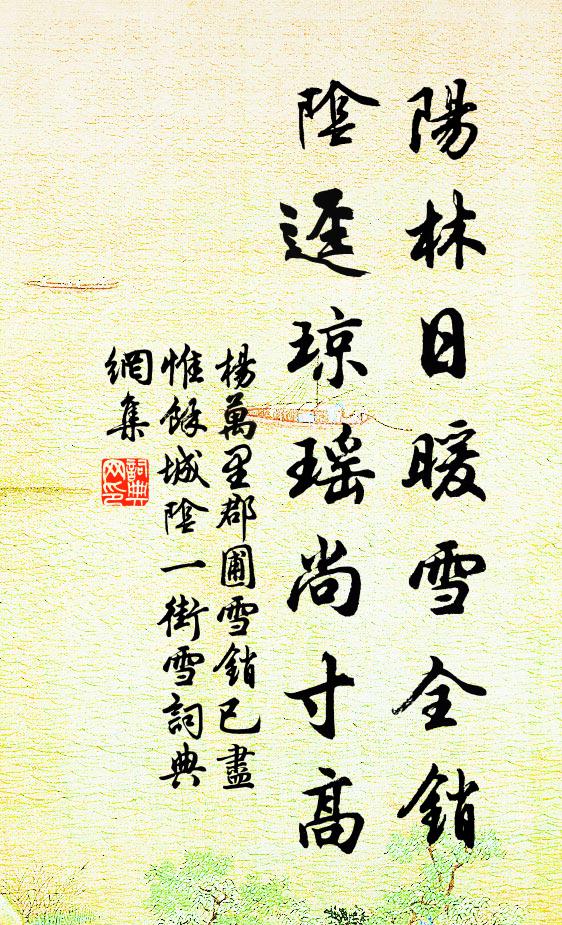 陽林日暖雪全銷
陰逕琼瑶尚寸髙
楊萬里郡圃雪銷已盡
惟餘城陰一街雪詞典
網集
詞典
网印